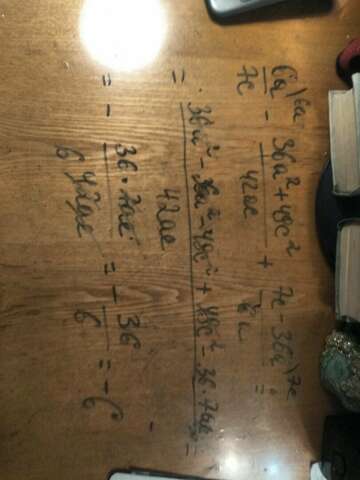 6a\6a / 7c - 36a² + 49c² / 42ac + 7c - 36a\7c / 6a =
= 36a² - 36a² - 49c² + 49c² - 36·7ac / 42ac =
= - 36·7ac / 6 42ac = - 36 / 6 = -6